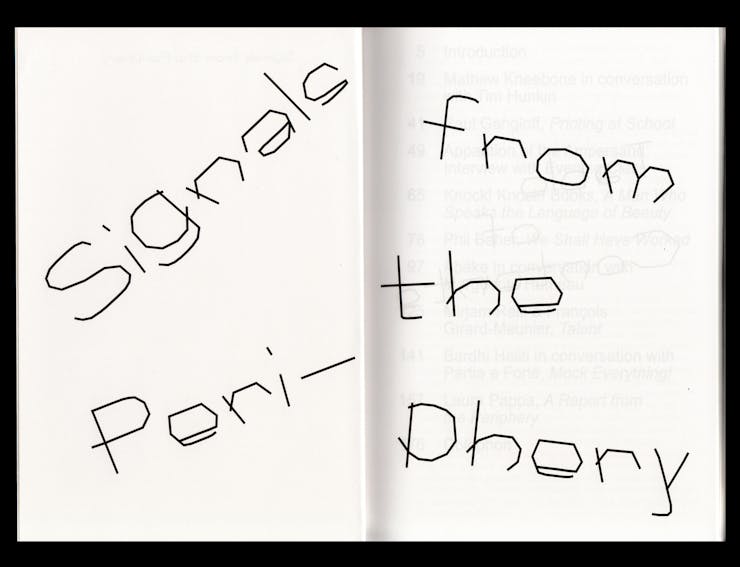 Signals
Peri-
from
the
Phery
5 Introduction
19 Mathew Kneebone in conversation
with Tim Hunkin
Paul Gangloff, Printing at School
49
Interview with
65 Knock! Knock! Books, A Man Who
Speaks the Language of Beauty
Phil Baber, We Shall Have Worked
97 in conversation with
François
Girard-Meunier, Talent
141 Bardhi Haliti in conversation with
Partia e Fortë, Mock Everything!
Laura Pappa, A Report from
the Periphery